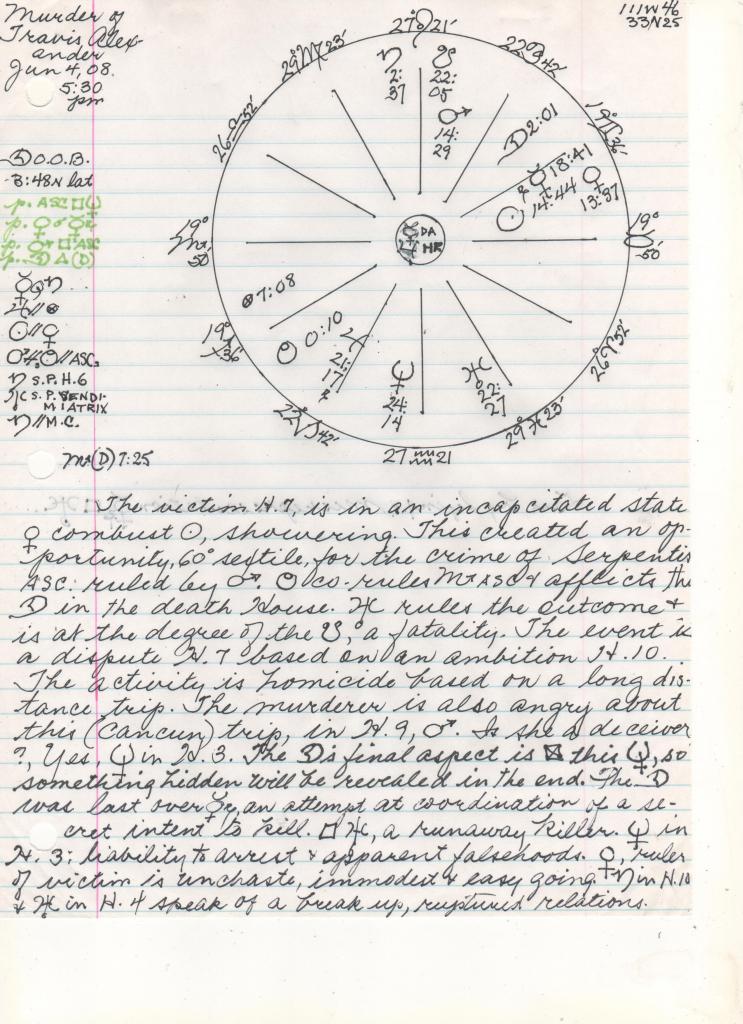 Murder of
Travis Alex-
ander
Jun 4, 08.
5:30
pm
111W46
33N25
27°♌21'
22°♋42'
19°♊36'
19°♉50'
26°♈52'
29°♓23'
27♒21
22♑42'
19°♐36'
19°♏50'
26°♎52'
29°♍23'
♄ 2:37
☋ 22:05
♂ 14:29
☽ 2:01
☿ ℞ 18:41
☉ 14:44
♀ 13:37
DA
HR
⊗7:08
0:10
♃ 21:17 ℞
♆ 24:14
♅ 22:27
☽ O.O.B.
-B:48N lat
p. ASC □
☿□♄
☉//♀
//ASC.
♄ S.P. H.6
S.P. VENDI-
MIATRIX
♄//M.C.
(D) 7:25
The victim H.7, is in an incapcitated state
♀ combust ☉, showering. This created an op-
portunity, 60° sextile, for the crime of Serpentis
ASC: ruled by ♂. co-rules ♏ ASC & afflicts the
☽ in the death House. ♅ rules the outcome &
is at the degree of the ☋, a fatality. The event is
a dispute H.7 based on an ambition H.10.
The activity is homicide based on a long dis-
tance trip. The murderer is also angry about
this (Cancun) trip, in H.9, ♂. Is she a deceiver
?, Yes, ♆ in H.3. The ☽'s final aspect is ⚻ this ♆, so
something hidden will be revealed in the end. The ☽
was last over ☿℞, an attempt at coordination of a se-
cret intent to kill. □ ♅, a runaway killer. ♆ in
H.3: liability to arrest & apparent falsehoods. ♀, ruler
of victim is unchaste, immodest & easy going. ♄ in H.10
& ♅ in H.4 speak of a break up, ruptured relations.